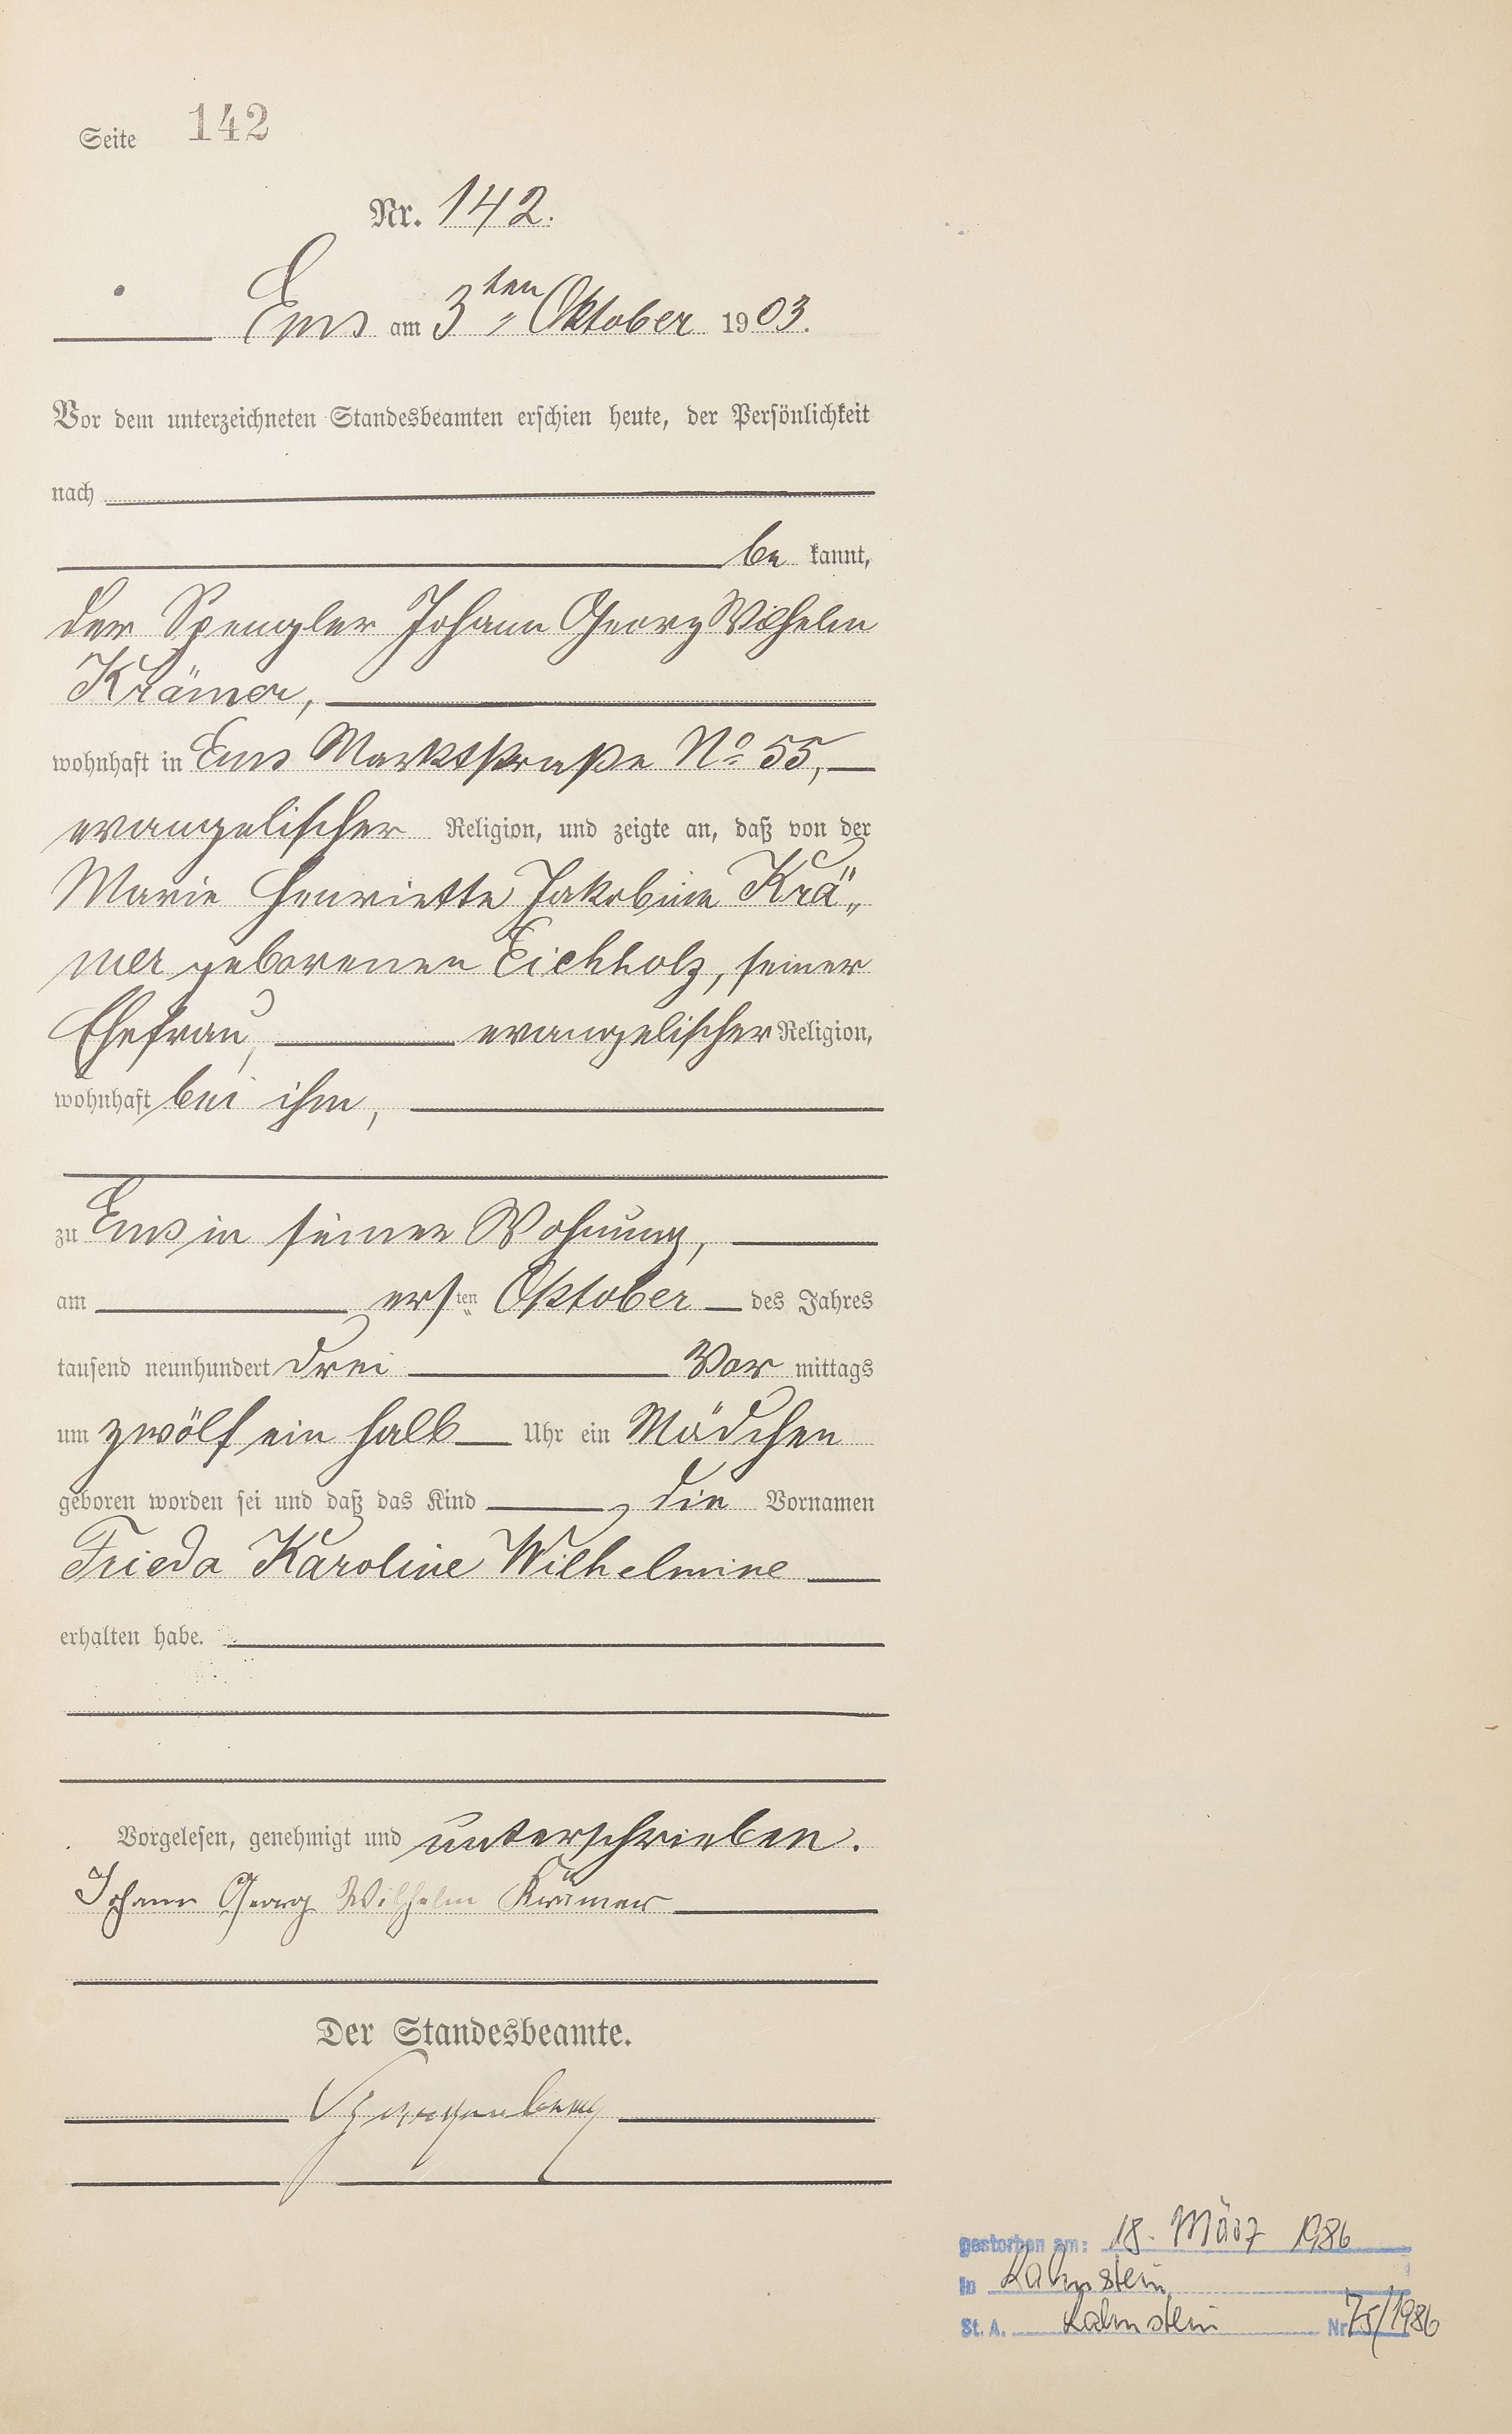 Seite 142
Nr. 142.
Ems am 3ten Oktober 1903.
Vor dem unterzeichneten Standesbeamten erschien heute, der Persönlichkeit
nach
be kannt,
der Spengler Johann Georg Wilhelm
Krämer,
wohnhaft in Ems Marktstraße No 55,
evangelischer Religion, und zeigte an, daß von der
Marie Henriette Jakobine Krä„
mer geborenen Eichholz, seiner
Ehefrau, evangelischer Religion,
wohnhaft bei ihm,
zu Ems in seiner Wohnung,
am ersten Oktober des Jahres
tausend neunhundert drei Vor mittags
um zwölf ein halb Uhr ein Mädchen
geboren worden sei und daß das Kind die Vornamen
Frieda Karoline Wilhelmine
erhalten habe.
Vorgelesen, genehmigt und unterschrieben.
Johann Georg Wilhelm Krämer
Der Standesbeamte.
gestorben am: 18. März 1986
in Lahnstein
St. A. Lahnstein Nr 75/1986